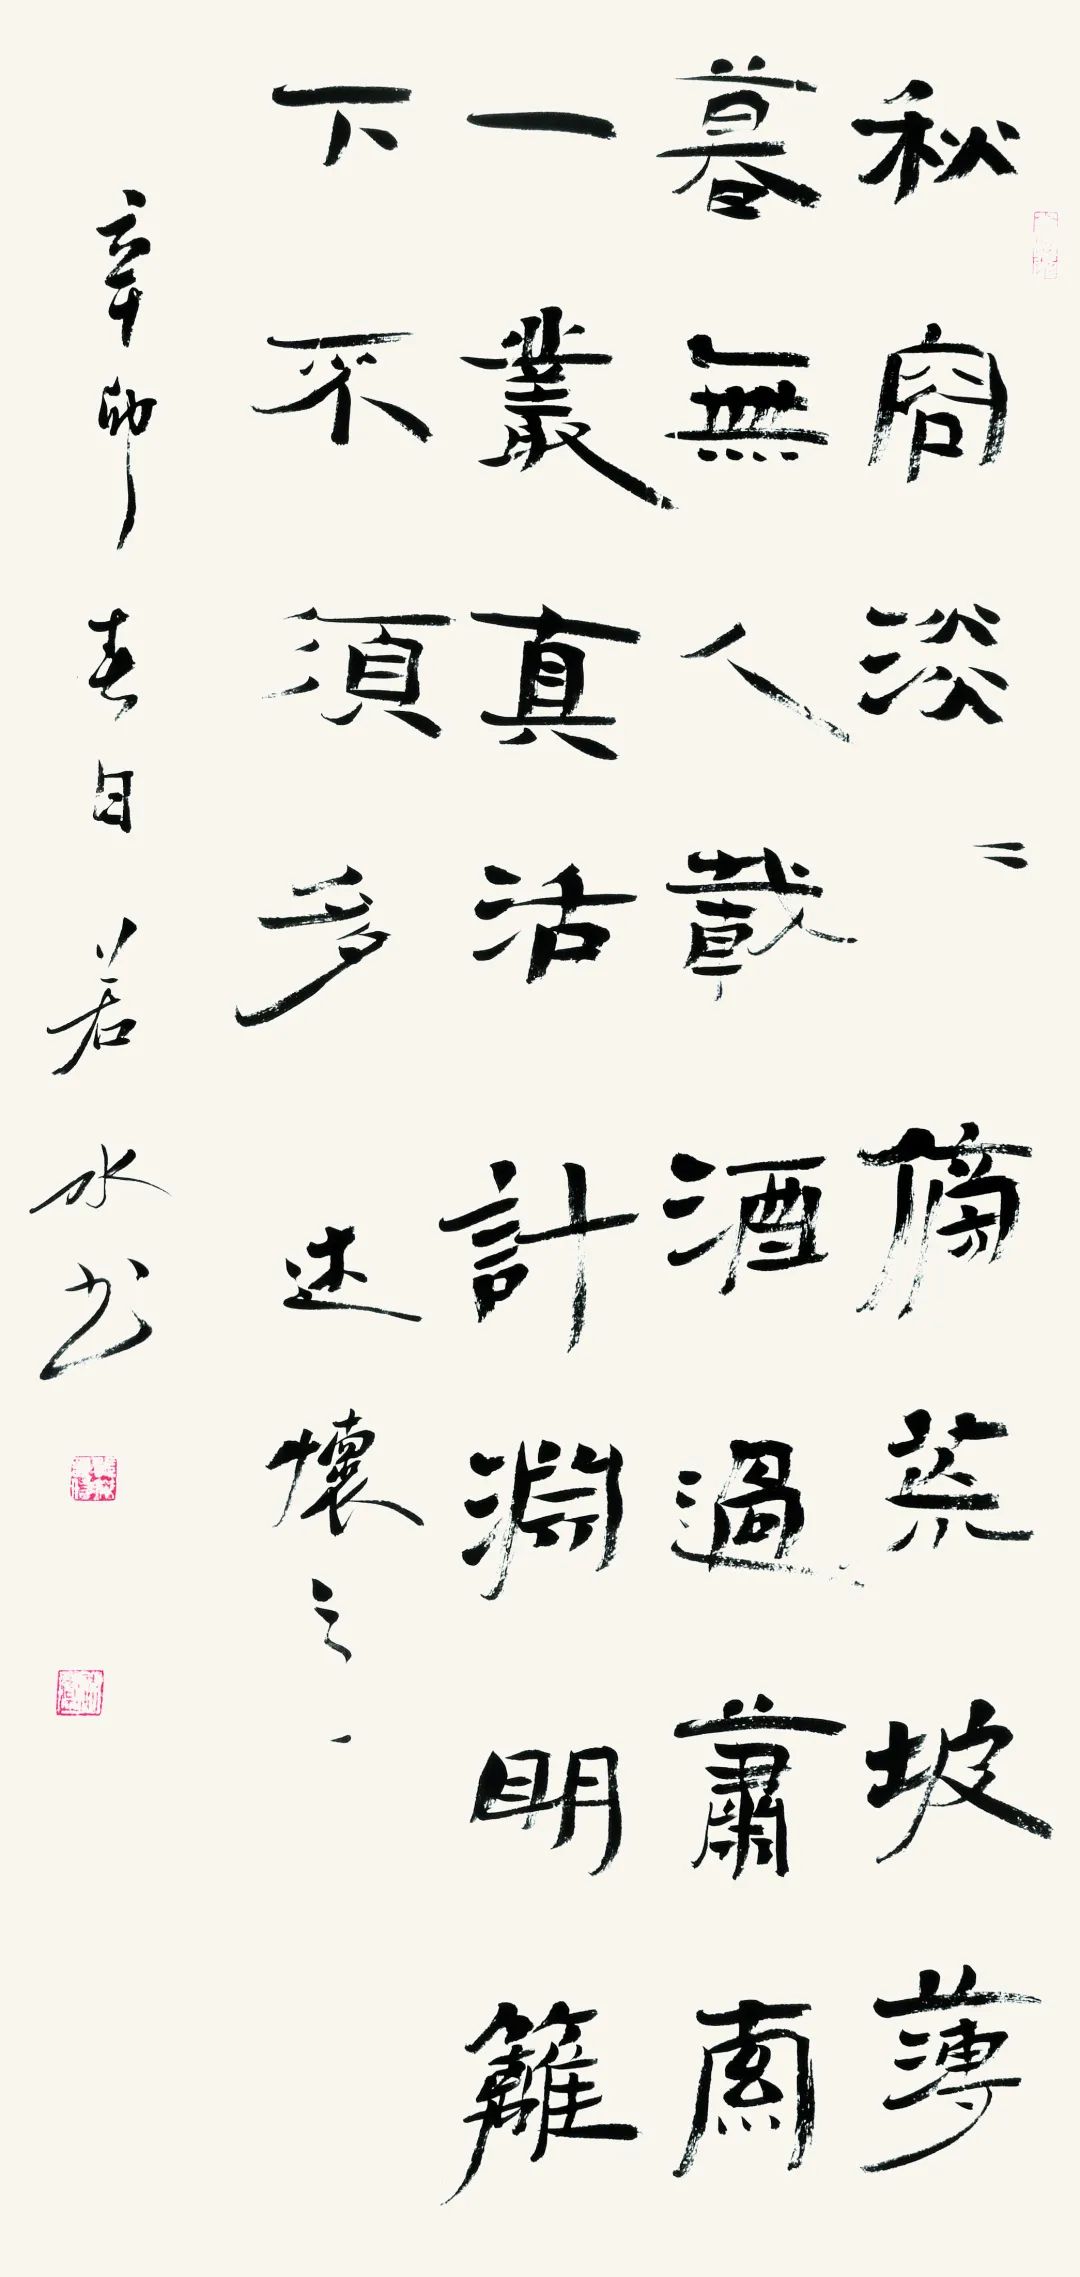 秋容淡〻傍荒坡薄
暮無人載酒過蕭索
一叢真活計淵明籬
下不須多 述懷之一
辛卯春日若水书